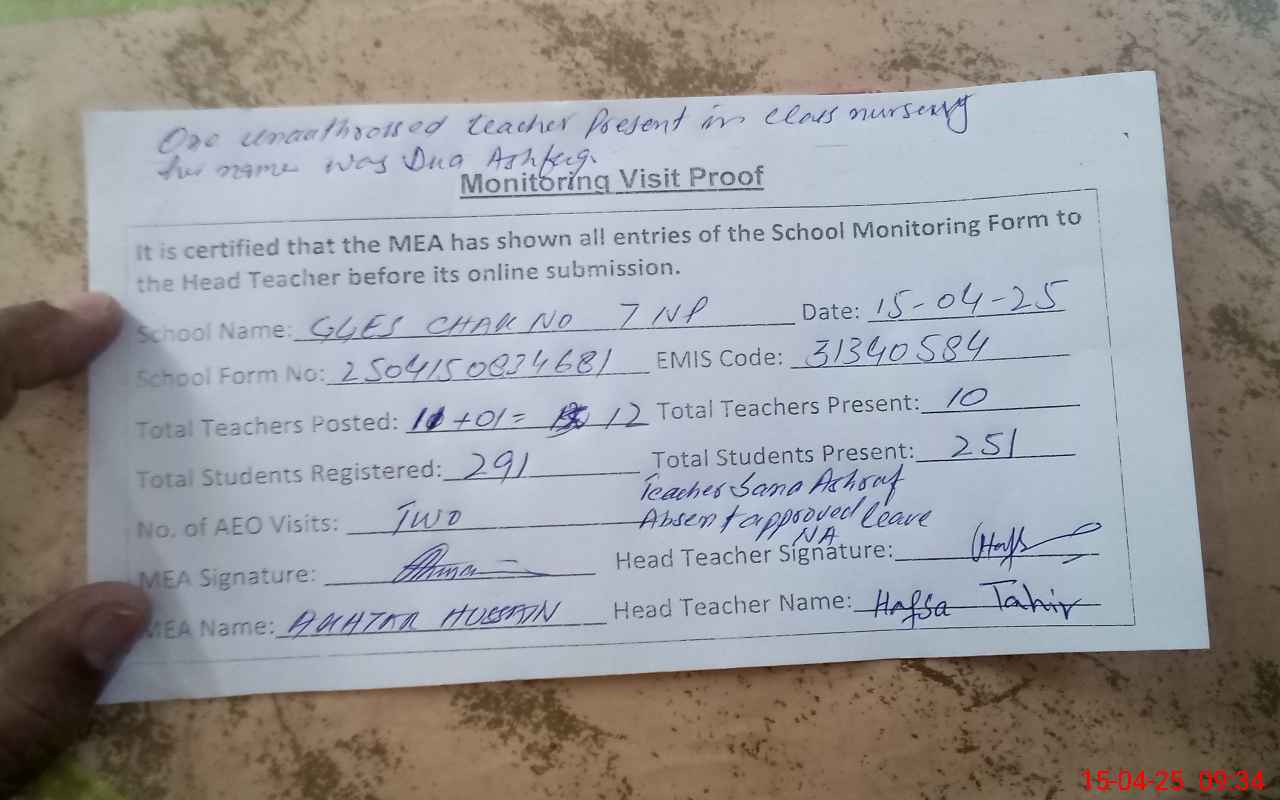 One unaathrossed teacher Present in class nursery
her name was Dua Ashfaq.
Monitoring Visit Proof
It is certified that the MEA has shown all entries of the School Monitoring Form to
the Head Teacher before its online submission.
School Name: GGES CHAK NO 7 NP Date: 15-04-25
School Form No: 2504150834681 EMIS Code: 31340584
Total Teachers Posted: 11+01= 12 Total Teachers Present: 10
Total Students Registered: 291 Total Students Present: 251
Teacher Sana Ashraf
No. of AEO Visits: Two Absent approved leave
NA
MEA Signature: Head Teacher Signature:
MEA Name: AKHTAR HUSSAIN Head Teacher Name: Hafsa Tahir
15-04-25 09:34